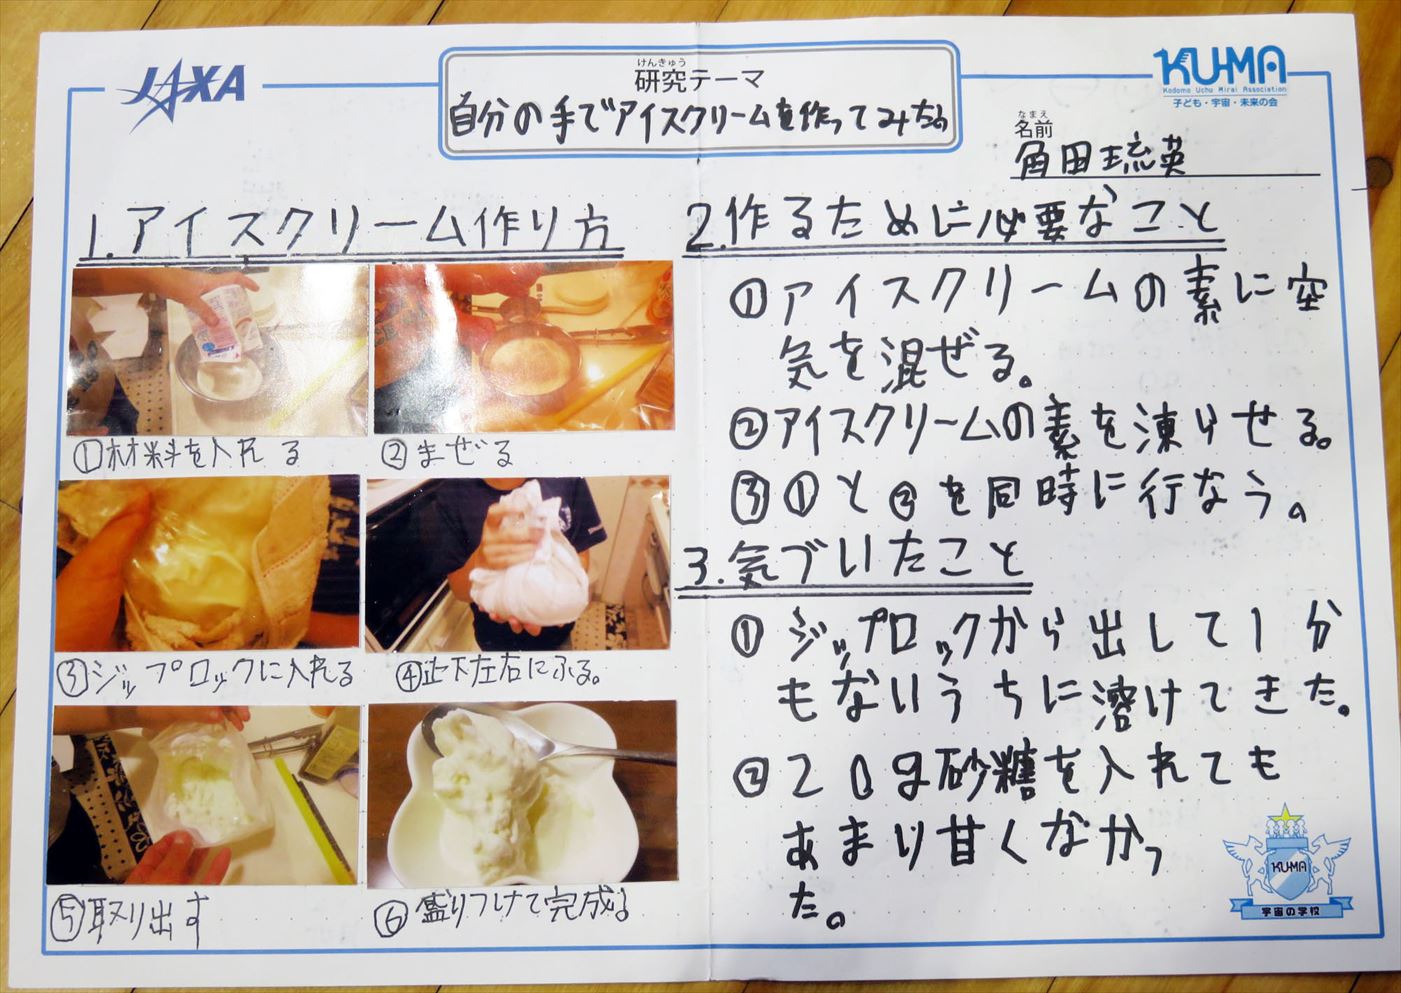 JAXA
けんきゅう
研究テーマ
自分の手でアイスクリームを作ってみたよ
KU-MA
Kodomo Uchu Mirai Association
子ども・宇宙・未来の会
なまえ
名前
角田琉英
1.アイスクリーム作り方
①材料を入れる
②まぜる
③ジップロックに入れる
④上下左右にふる。
⑤取り出す
⑥盛りつけて完成る
2.作るために必要なこと
①アイスクリームの素に空
気を混ぜる。
②アイスクリームの素を凍らせる。
③①と②を同時に行なう。
3.気づいたこと
①ジップロックから出して1分
もないうちに溶けてきた。
②20g砂糖を入れても
あまり甘くなかっ
た。
KU-MA
宇宙の学校